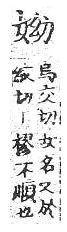 烏交切女名又於
絞切丨不順也